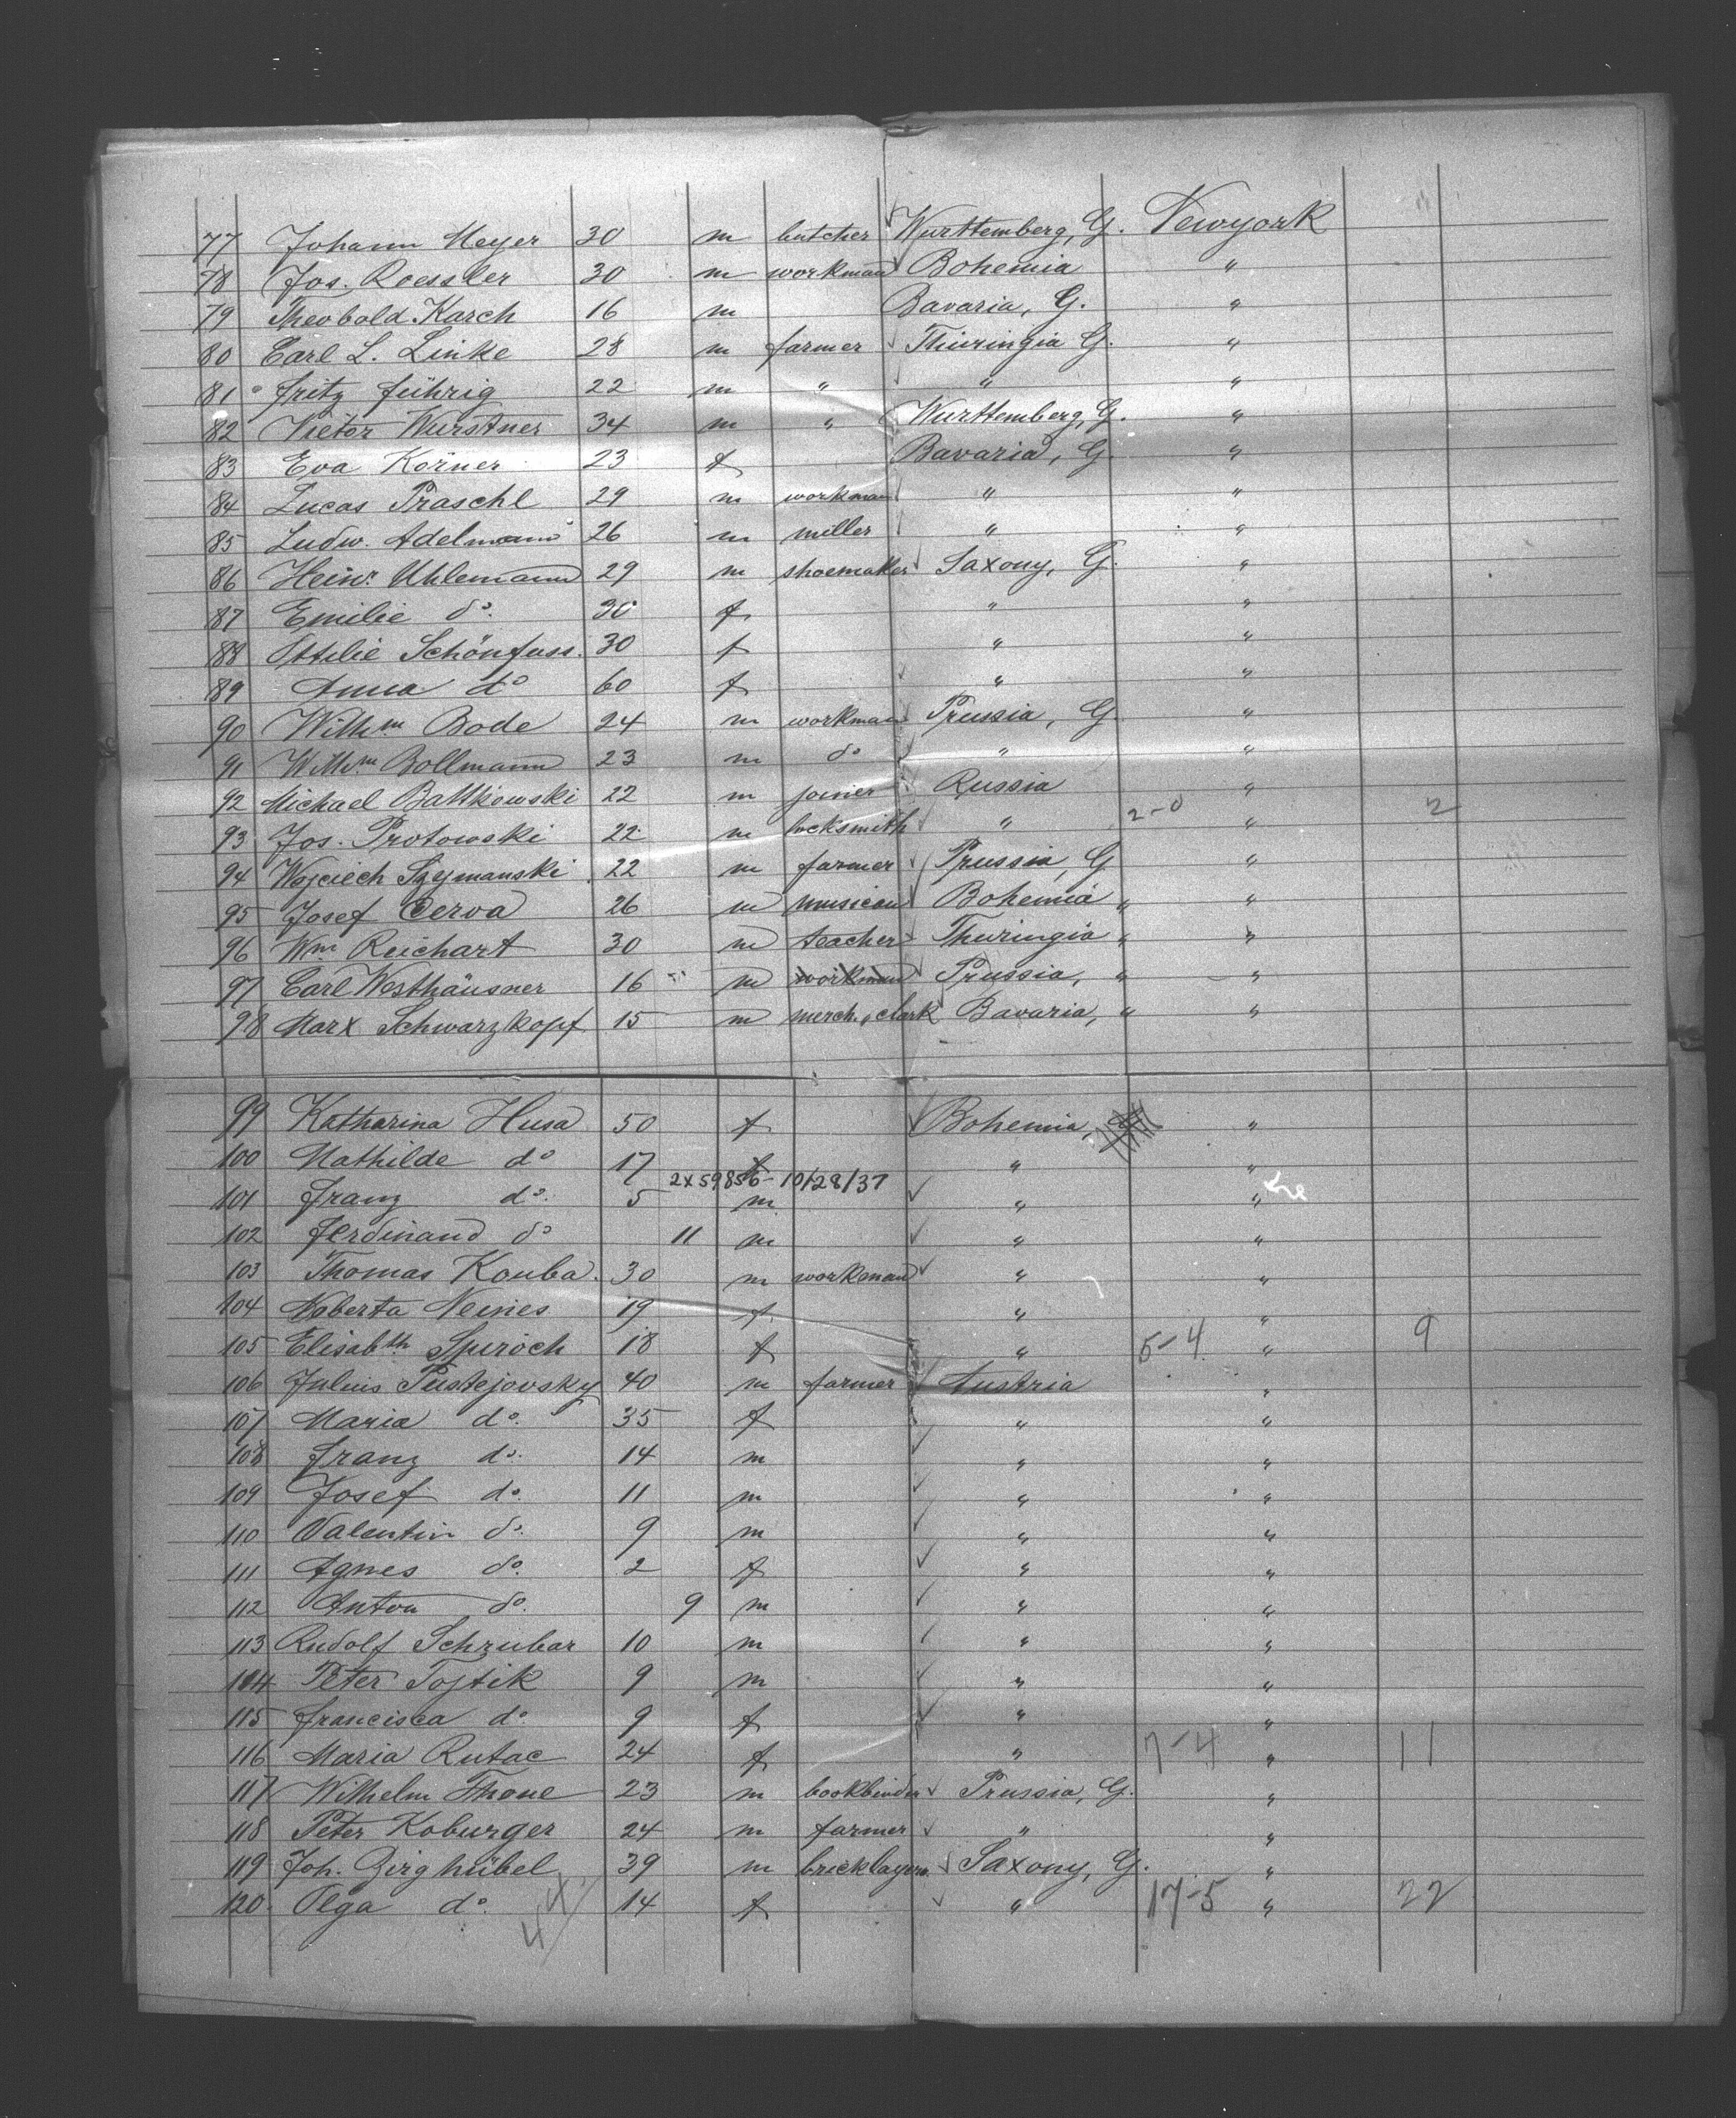 77 Johann Meyer 30 m butcher Wurttemberg, G. Newyork
78 Jos. Roessler 30 m workman Bohemia "
79 Theobold Karch 16 m Bavaria, G. "
80 Carl L. Linke 28 m farmer Thuringia G. "
81 Fritz Führig 22 m " " "
82 Victor Wurstner 34 m " Wurttemberg, G. "
83 Eva Körner 23 f Bavaria, G. "
84 Lucas Praschl 29 m workman " "
85 Ludw. Adelmann 26 m miller " "
86 Heinr. Uhlemann 29 m shoemaker Saxony, G. "
87 Emilie do. 30 f " "
88 Ottilie Schönfuss. 30 f " "
89 Anna do 60 f " "
90 Wilhm Bode 24 m workman Prussia, G. "
91 Wilhm Bollmann 23 m do " "
92 Michael Battkowski 22 m joiner Russia "
93 Jos. Protowski 22 m locksmith " 2-0 " 2
94 Wojciech Szymanski 22 m farmer Prussia, G "
95 Josef Cerva 26 m musican Bohemia " "
96 Wm Reichart 30 m teacher Thuringia " "
97 Carl Westhäusner 16 m workman Prussia, " "
98 Marx Schwarzkopf 15 m merch. clark Bavaria, " "
99 Katharina Husa 50 f Bohemia, "
100 Mathilde do 17 f " "
2x59856-10/28/37
101 Franz do. 5 m " "
102 Ferdinand do 11 m " "
103 Thomas Kouba. 30 m workman " "
104 Noberta Neines 19 f " "
105 Elisabth Spiroch 18 f " 5-4 " 9
106 Julius Pustejovsky 40 m farmer Austria "
107 Maria do. 35 f " "
108 Franz do. 14 m " "
109 Josef do. 11 m " "
110 Valentin do. 9 m " "
111 Agnes do. 2 f " "
112 Anton do. 9 m " "
113 Rudolf Schrubar 10 m " "
114 Peter Tojtik 9 m " "
115 Francisca do. 9 f " "
116 Maria Rutac 24 f " 7-4 " 11
117 Wilhelm Thone 23 m bookbinder Prussia, G. "
118 Peter Koburger 24 m farmer " "
119 Joh. Girghübel 39 m bricklayer Saxony, G. "
120. Olga do. 14 f " 17-5 " 22
44